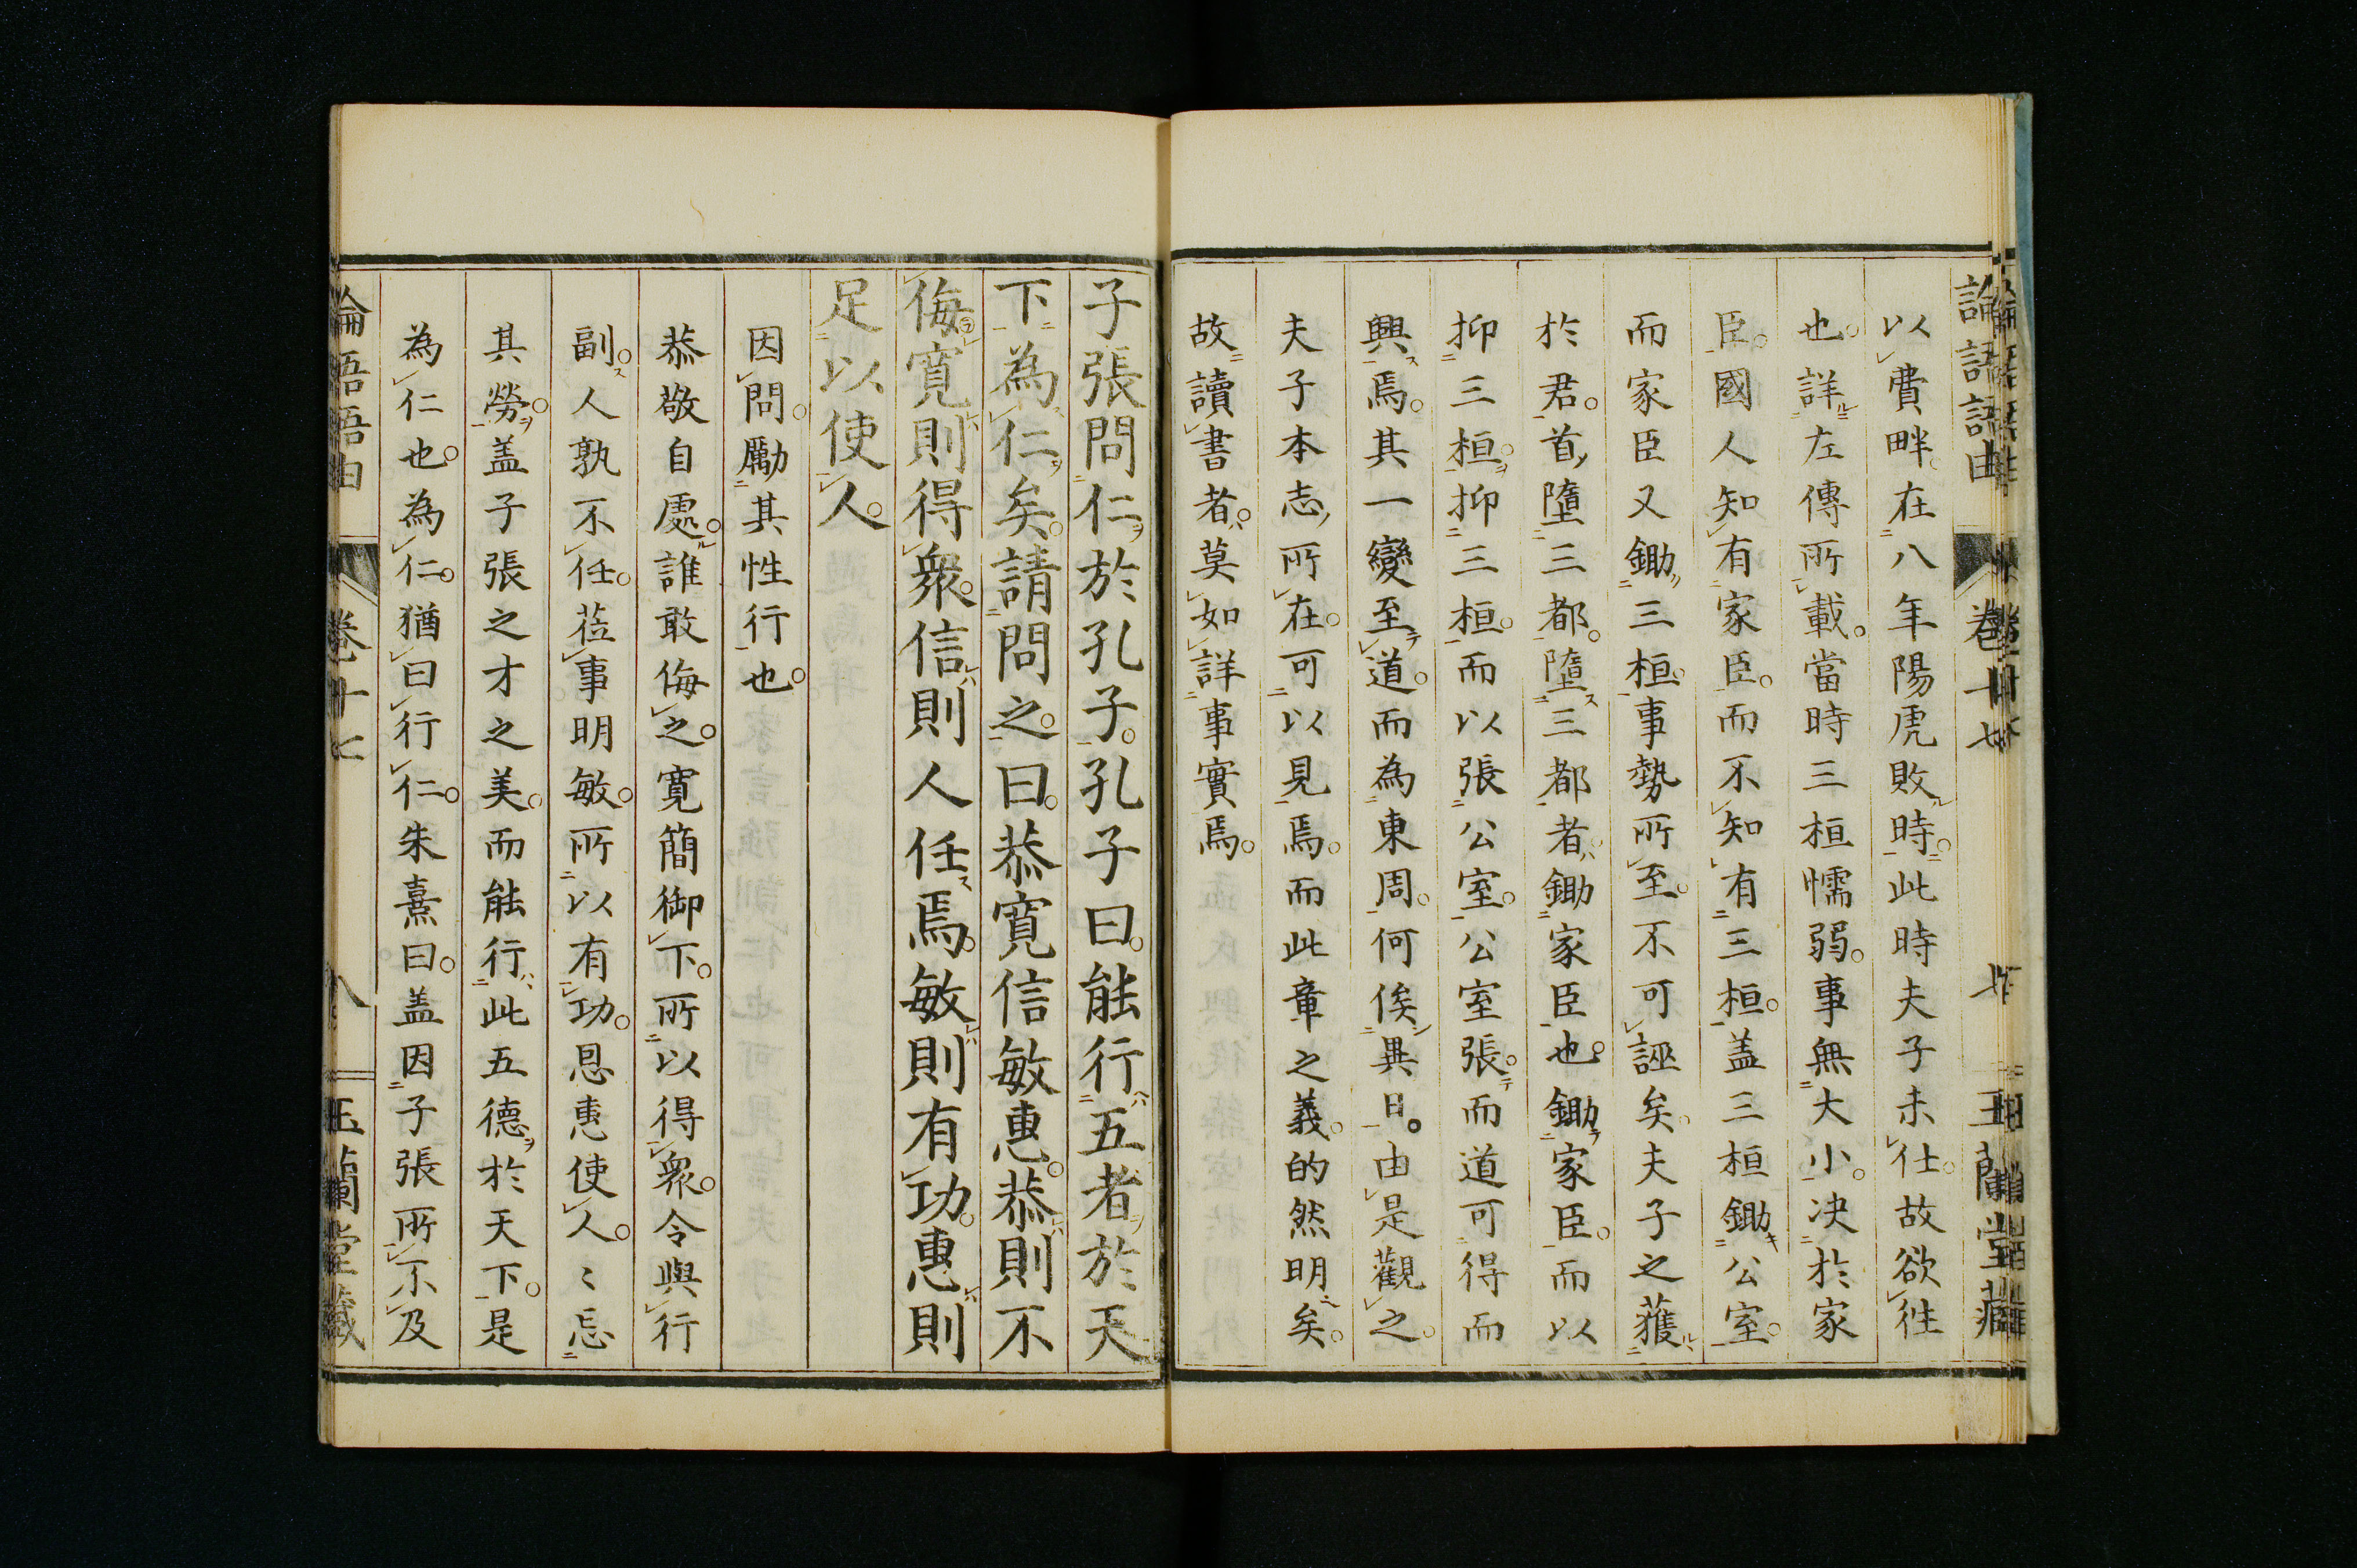 論語語由
卷十七
七
玉蘭堂藏
以費畔在八年陽虎敗時此時夫子未仕故欲徃
也詳左傳所載當時三桓懦弱事無大小决於家
臣國人知有家臣而不知有三桓盖三桓鋤公室
而家臣又鋤三桓事勢所至不可誣矣夫子之獲
於君首墮三都墮三都者鋤家臣也鋤家臣而以
抑三桓抑三桓而以張公室公室張而道可得而
興焉其一變至道而為東周何俟異日由是觀之
夫子本志所在可以見焉而此章之義的然明矣
故讀書者莫如詳事實焉
子張問仁於孔子孔子曰能行五者於天
下為仁矣請問之曰恭寬信敏惠恭則不
侮寬則得衆信則人任焉敏則有功惠則
足以使人
因問勵其性行也
恭敬自處誰敢侮之寬簡御下所以得衆令與行
副人孰不任莅事明敏所以有功恩惠使人〻忘
其勞盖子張之才之美而能行此五德於天下是
為仁也為仁猶曰行仁朱熹曰盖因子張所不及
論語語由
卷十七
八
玉蘭堂藏